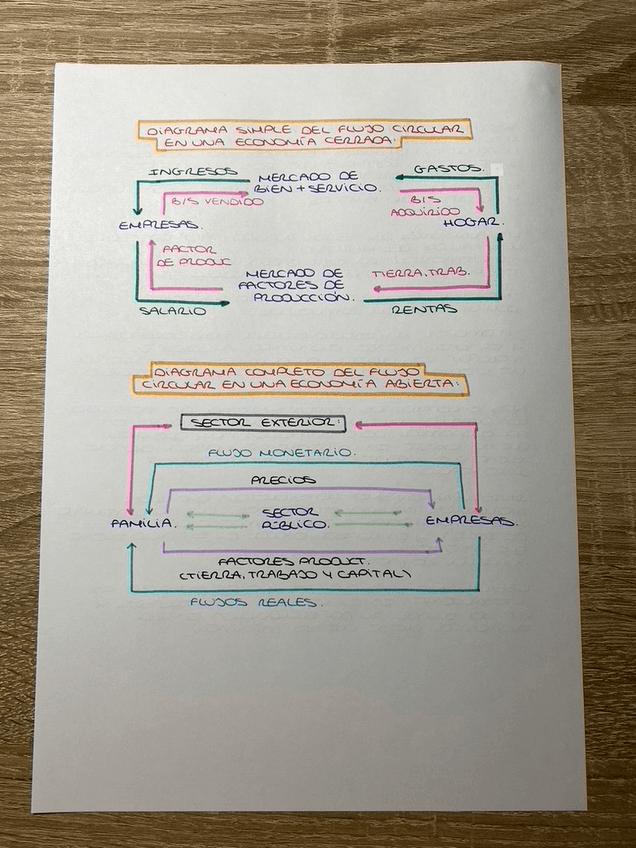 DIAGRAMA SIMPLE DEL FLUJO CIRCULAR
EN UNA ECONOMÍA CERRADA:
INGRESOS
MERCADO DE
BIEN + SERVICIO.
GASTOS.
B/S VENDIDO
B/S
ADQUIRIDO
EMPRESAS.
HOGAR.
FACTOR
DE PRODUC
MERCADO DE
FACTORES DE
PRODUCCIÓN.
TIERRA, TRAB.
SALARIO
RENTAS
DIAGRAMA COMPLETO DEL FLUJO
CIRCULAR EN UNA ECONOMÍA ABIERTA:
SECTOR EXTERIOR:
FLUJO MONETARIO.
PRECIOS
FAMILIA.
SECTOR
PÚBLICO.
EMPRESAS.
FACTORES PRODUCT.
(TIERRA, TRABAJO Y CAPITAL)
FLUJOS REALES.